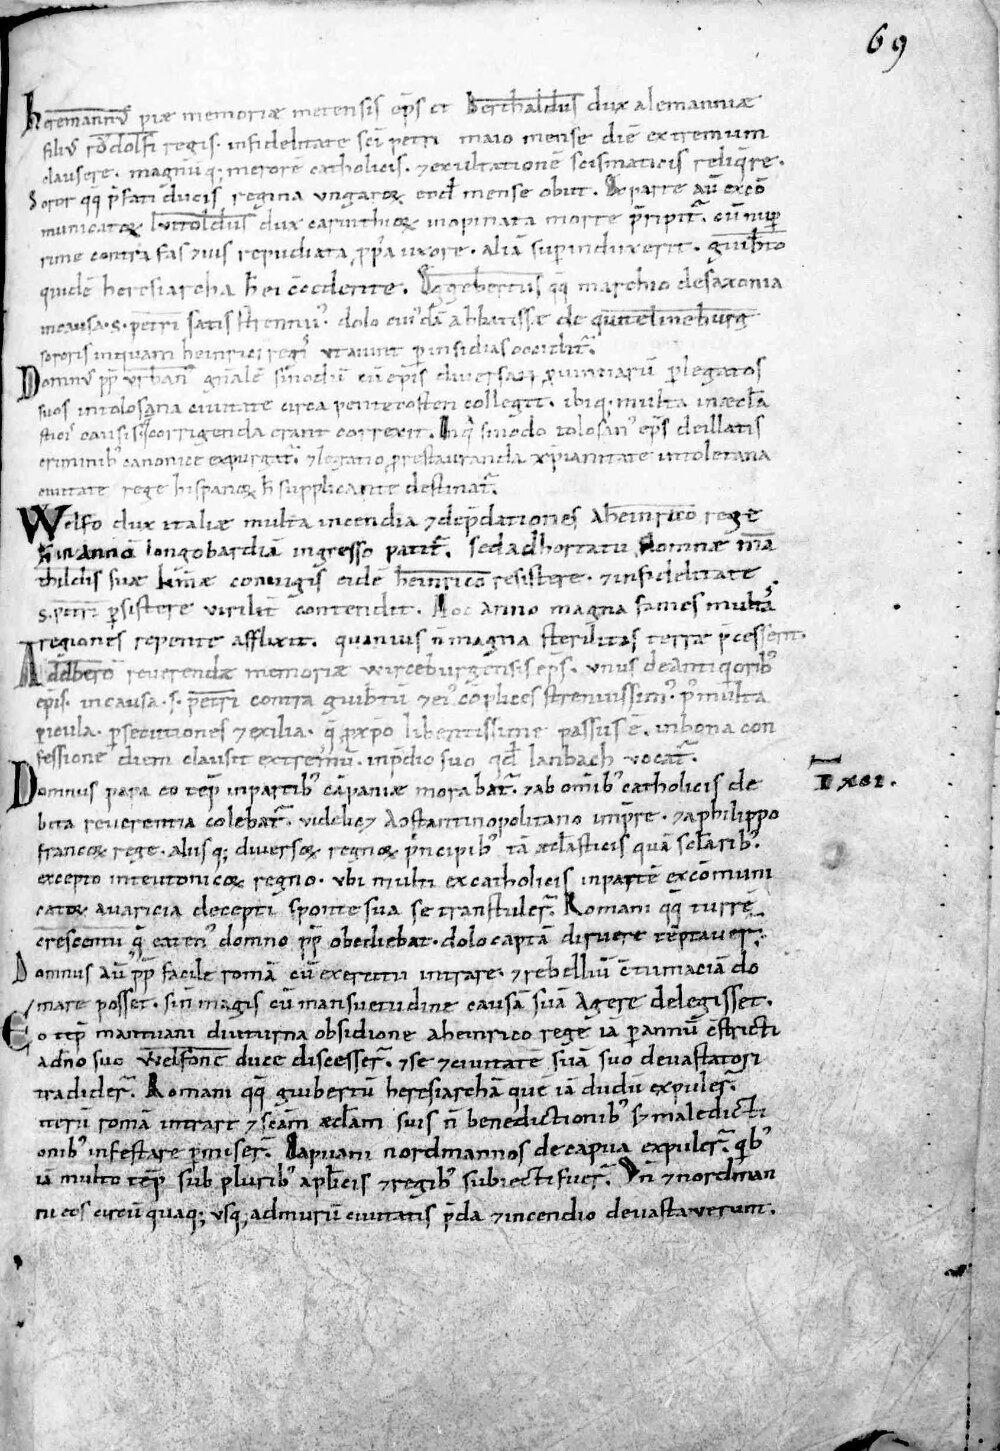 69
Heremannꝰ piæ memoriæ metensis ep̄s et Berthaldus dux alemanniæ
filiꝰ rǒdolfi regis. infidelitate sc̄i petri maio mense diē extremum
clausere. magnūq; merorē catholicis. ⁊ exultationē scismaticis reliq̄re.
Soror qq̇ p̄fati ducis regina ungaroꝝ eod̄ mense obiit. Ex parte aū excō
municatoꝝ Lǔtoldus dux carinthioꝝ inopinata morte p̄ripit᷑. cū nup̄
rime contra fas ⁊ ius repudiata ꝓpa uxore. aliā sup̄induxerit. guib̄to
quidē heresiarcha h̄ ei c̄cedente. Eggebertus qq̇ marchio de saxonia
in causa .s. petri satis strenuꝰ. dolo cuiꝰdā abbatissæ de quitelineburg
sororis inquam heinrici regꝭ ut aiunt p̄ insidias occidit᷑.
Domnꝰ pp̄ urbanꝰ gn̄alē sinodū cū ep̄is diversaꝝ ꝓvintiarū p̄ legatos
suos in tolosana civitate circa pentecosten collegit. ibiq. multa in æcl̄a
sticiꝭ causis corrigenda erant correxit. Inq̇ sinodo tolosanꝰ ep̄s de illatis
criminibꝰ canonice expurgat᷑. ⁊ legatio ꝓ restauranda xp̄ianitate in toletana
civitate rege hispanoꝝ h̄ supplicante destinat᷑.
Welfo dux italiæ multa incendia ⁊ dep̄dationes ab heinrico rege
h̄ in anno longobardiā ingresso patit᷑. sed adhortatu domnæ ma
thildis suæ coniugis eidē heinrico resistere. ⁊ in fidelitate
s. petri p̄sistere virilit᷑ contendit. Hoc anno magna fames multas
regiones repente afflixit. quamvis n̄ magna sterilitas terræ p̄cesserit.
Adelbero reverendæ memoriæ wirceburgensis ep̄s. unus de antiq̇oribꝰ
ep̄is. in causa .s. petri contra guib̄tū ⁊ eiꝰ cōplices strenuissimꝰ. pꝰ multa
picula. p̄secutiones ⁊ exilia. q̄ ꝓ xp̄o libentissime passus ē. in bona con
fessione diem clausit extremū. in p̄dio suo qd̄ lanbach vocat᷑.
Domnus papa eo tēp̄ in partibꝰ cāpaniæ morabat᷑. ⁊ ab om̄ibꝰ catholicis de
bita reverentia colebat᷑. videlic⁊ a c̄stantinopolitano imp̄re. ⁊ a philippo
francoꝝ rege. aliisq; diversoꝝ regnoꝝ p̄ncipibꝰ tā æcl̄asticis quā sc̄larib.ꝰ
excepto in teutonicoꝝ regno. ubi multi ex catholicis in partē excōmuni
catoꝝ avaricia decepti sponte sua se transtuler᷑. Romani qq̇ turrē
crescentii q̄ eatenꝰ domno pp̄ obediebat. dolo captā diruere tēptaver᷑.
Domnus aū pp̄ facile romā cū exercitu intrare. ⁊ rebelliū c̄tumaciā do
mare posset. si n̄ magis cū mansuetudine causā suā agere delegisset.
Eo tēp̄ mantuani diuturna obsidione a heinrico rege iā p̄ annū c̄stricti
a dn̄o suo welfone duce discesser᷑. ⁊ se ⁊ civitatē suā suo devastatori
tradider᷑. Romani qq̇ guibertū heresiarchā quē iā dudū expuler᷑.
iterū romā intrare ⁊ sc̄am æcl̄am suis n̄ benedictionibꝰ s; maledicti
onibꝰ infestare p̄miser᷑. Capuani nordmannos de capua expuler᷑. q̇bꝰ
iā multo tēp̄ sub pluribꝰ apl̄icis ⁊ regibꝰ subiecti fuer᷑. Vn̄ ⁊ nordman
ni eos circūquaq; usq; ad murū civitatis p̄da ⁊ incendio devastaverunt.
Ī xci.